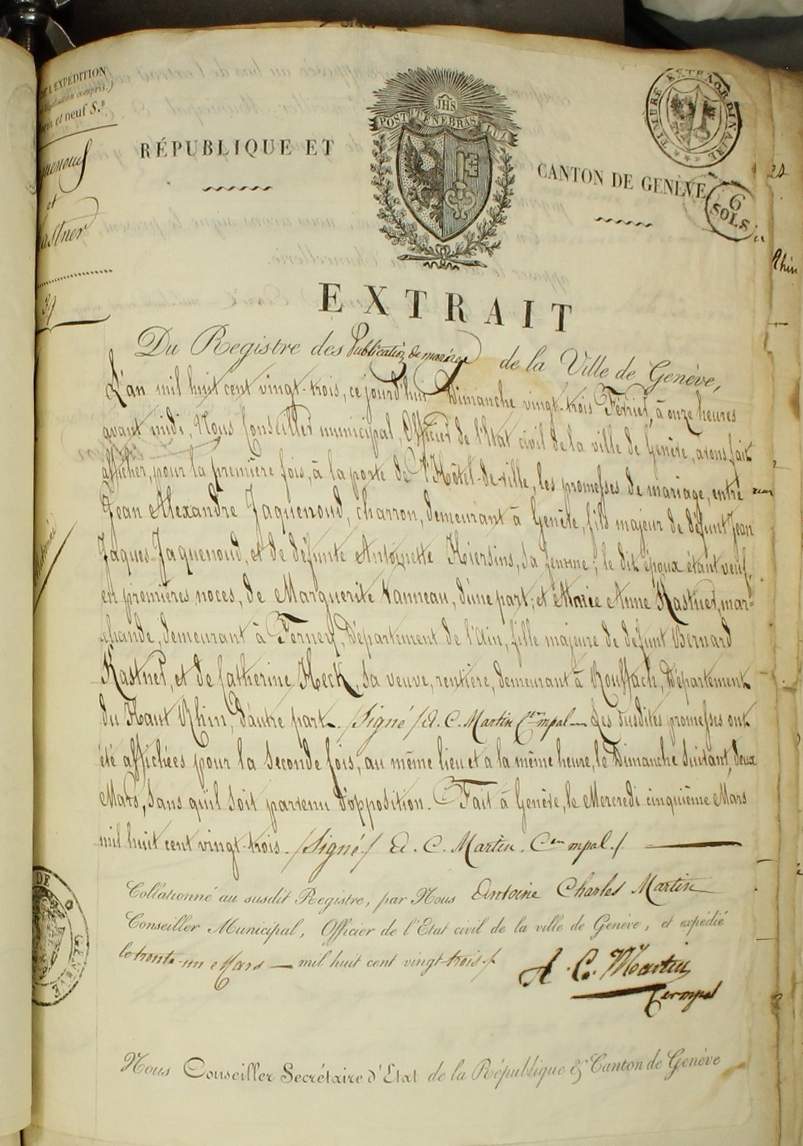 L'EXPÉDITION
et neuf S.s
et
RÉPUBLIQUE ET
JHS
POST TENEBRAS LUX
CANTON DE GENÈVE
TIMBRE EXTRAORDINAIRE
6
SOLS
EXTRAIT
Du Registre des Publications de mariage de la Ville de Genève,
L'an mil huit cent vingt-trois, ce jourd'hui Dimanche vingt-trois Février, à onze heures
avant midi, Nous Conseiller municipal, Officier de l'Etat civil de la ville de Genève, avons fait
afficher, pour la première fois, à la porte de l'Hôtel-de-ville, les promesses de mariage, entre
Jean Alexandre Jaquenoud, charron, demeurant à Genève, fils majeur de défunt Jean
Jaques Jaquenoud, et de défunte Antoinette Hiersins, sa femme; le dit époux étant veuf,
en premières noces, de Marguerite Vanneau, d'une part; et Marie Anne Kastner, mar-
chande, demeurant à Ferney, Département de l'Ain, fille majeure de défunt Bernard
Kastner, et de Catherine Heck, sa veuve, rentière, demeurant à Rouffach, Département
du Haut Rhin, d'autre part. /Signé/ A. C. Martin Cer mpal. Les susdites promesses ont
été affichées pour la seconde fois, au même lieu et à la même heure, le Dimanche suivant, deux
Mars, sans qu'il soit parvenu d'opposition. Fait à Genève, le Mercredi cinquième Mars
mil huit cent vingt-trois. /Signé/ A. C. Martin. Cer mpal. /
Collationné au susdit Registre, par Nous Antoine Charles Martin
Conseiller Municipal, Officier de l'Etat civil de la ville de Genève, et expédié
le trente-un Mars mil huit cent vingt-trois /.
A. C. Martin
Cer mpal
DE GENÈVE
Nous Conseiller Secrétaire d'Etat de la République & Canton de Genève